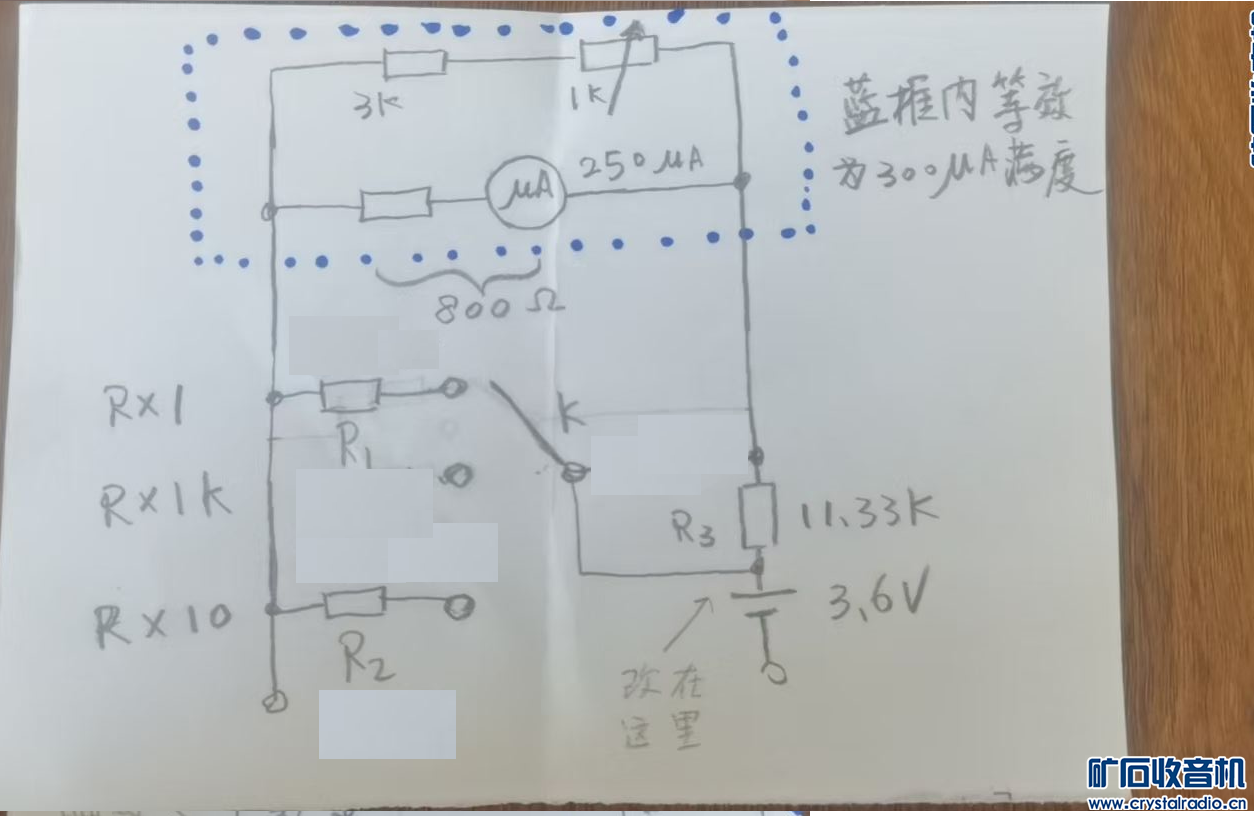 3K
1K
蓝框内等效
为300μA满度
μA
250μA
800Ω
R×1
R1
K
R×1K
R3
11.33K
R×10
R2
3.6V
改在
这里
矿石收音机
www.crystalradio.cn